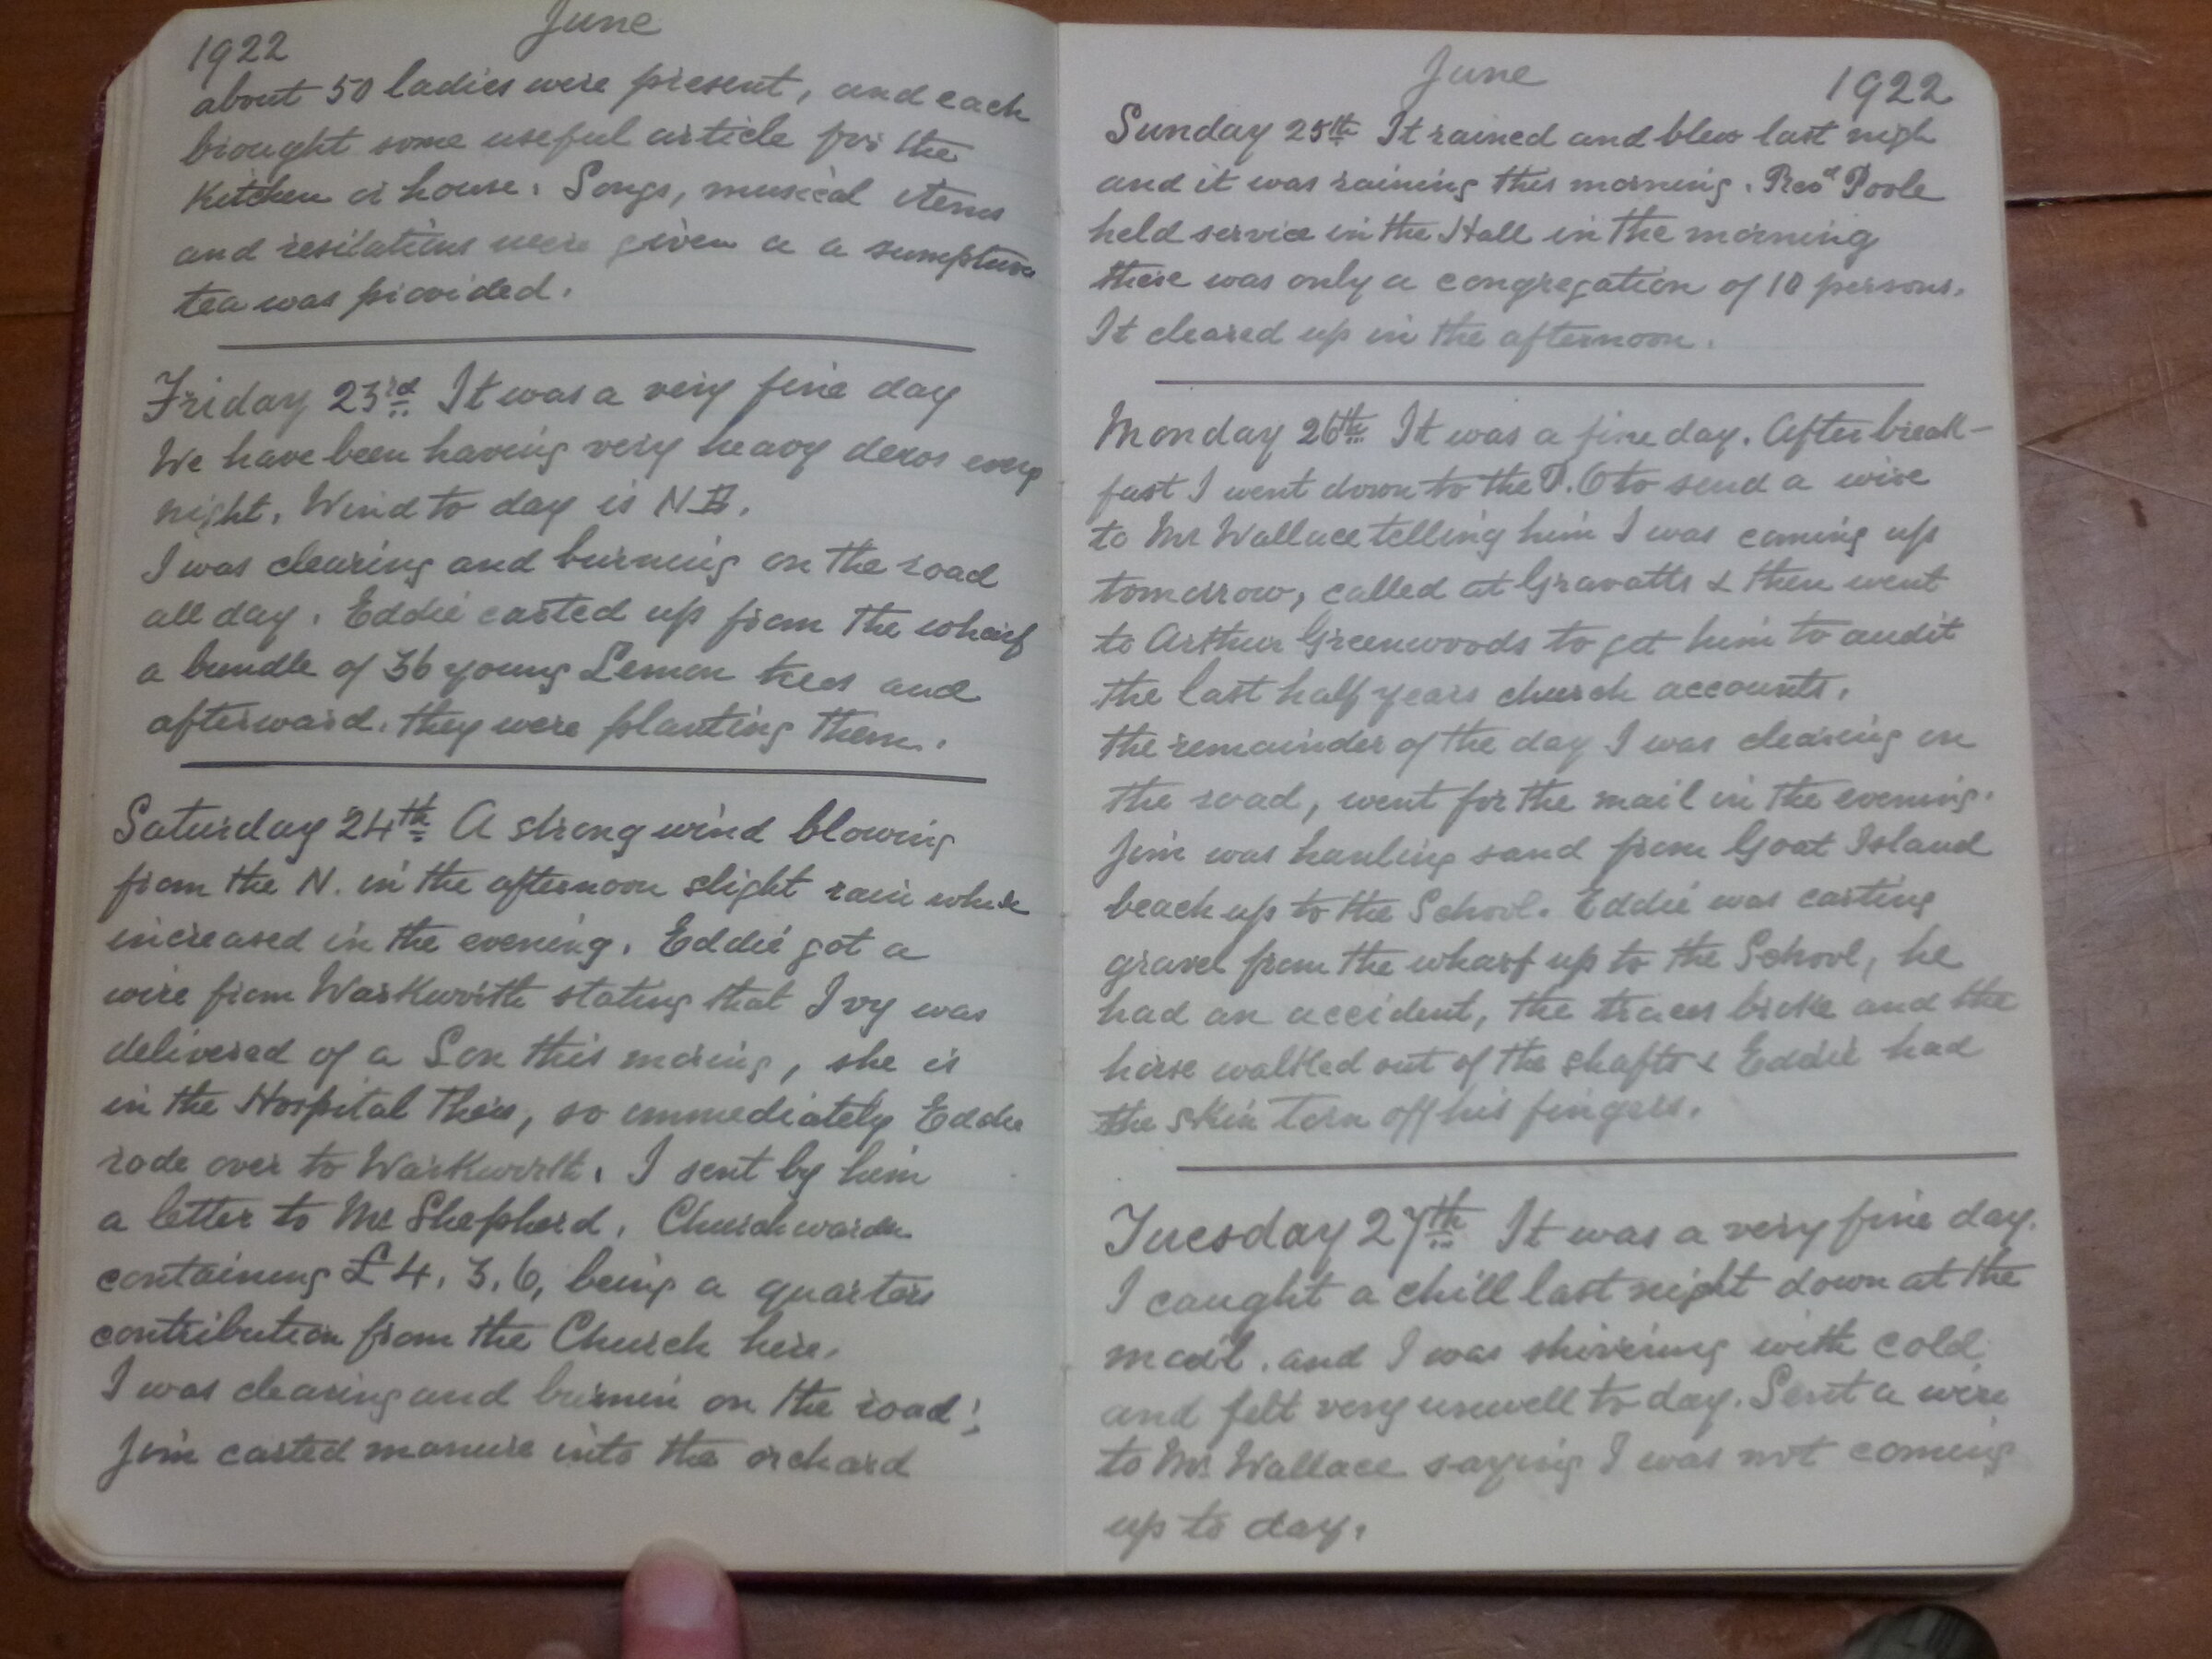 1922 June
about 50 ladies were present, and each
brought some useful article for the
Kitchen or house. Songs, musical items
and resitations were given a a sumptuou
tea was provided.
Friday 23rd It was a very fine day
We have been having very heavy dews every
night. Wind to day is N E.
I was clearing and burning on the road
all day. Eddie carted up from the wharf
a bundle of 36 young Lemon trees and
afterward. they were planting them.
Saturday 24th A strong wind blowing
from the N. in the afternoon slight rain which
increased in the evening. Eddie got a
wire from Warkworth stating that Ivy was
delivered of a Son this moring, she is
in the Hospital there, so immediately Eddie
rode over to Warkworth. I sent by him
a letter to Mr Shepherd. Churchwarden
containing £4. 3. 6, being a quarters
contribution from the Church here.
I was clearing and burnin on the road;
Jim carted manure into the orchard
June 1922
Sunday 25th It rained and blew last nigh
and it was raining this morning. Revd Poole
held service in the Hall in the morning
there was only a congregation of 10 persons.
It cleared up in the afternoon.
Monday 26th It was a fine day. After break-
fast I went down to the P.O to send a wire
to Mr Wallace telling him I was coming up
tomorrow, called at Gravatts & then went
to Arthur Greenwoods to get him to audit
the last half years church accounts.
the remainder of the day I was clearing on
the road, went for the mail in the evening.
Jim was hauling sand from Goat Island
beach up to the School. Eddie was carting
gravel from the wharf up to the School, he
had an accident, the traces broke and the
horse walked out of the shafts & Eddie had
the skin torn off his fingers.
Tuesday 27th It was a very fine day.
I caught a chill last night down at the
mail. and I was shivering with cold
and felt very unwell to day. Sent a wire
to Mr Wallace saying I was not coming
up to day.